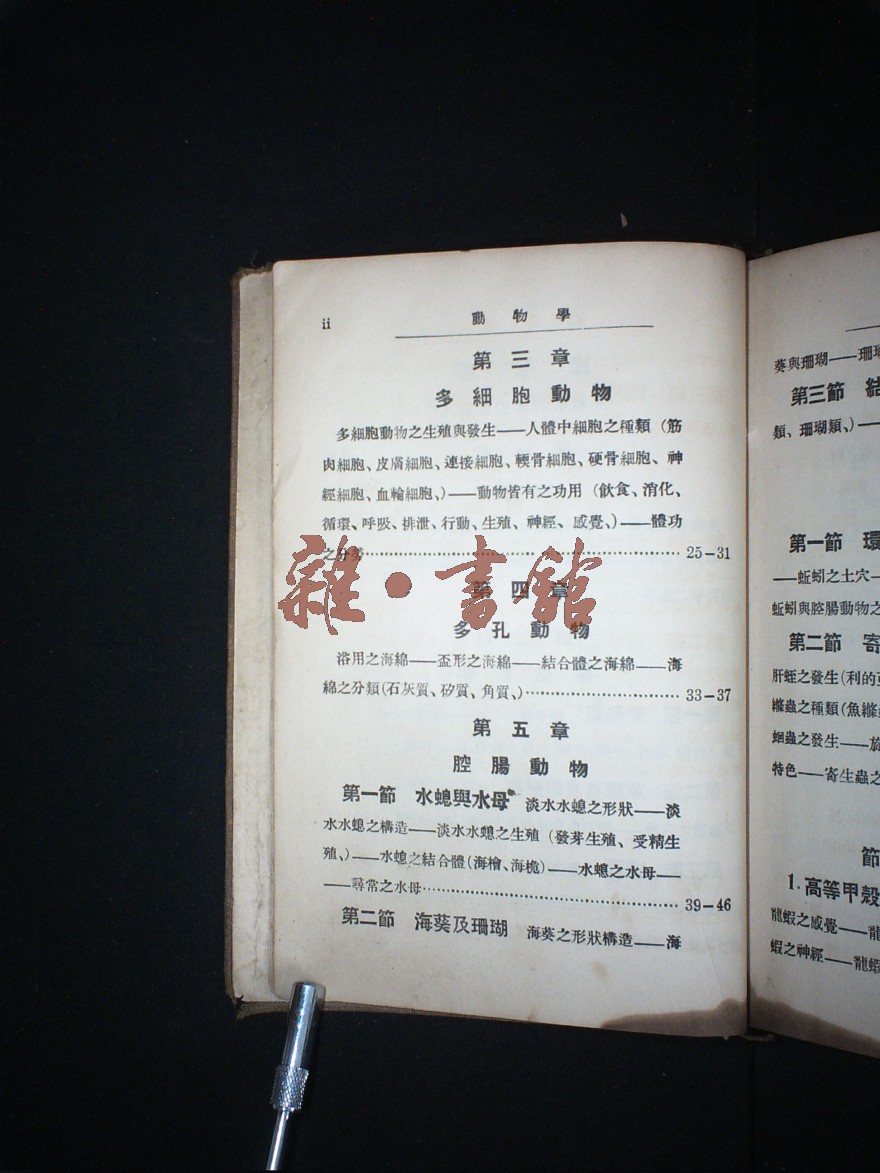 ii
動物學
第三章
多細胞動物
多細胞動物之生殖與發生——人體中細胞之種類（筋
肉細胞、皮膚細胞、連接細胞、輭骨細胞、硬骨細胞、神
經細胞、血輪細胞、）——動物皆有之功用（飲食、消化、
循環、呼吸、排泄、行動、生殖、神經、感覺、）——體功
之分勞………………………………25－31
第四章
多孔動物
浴用之海綿——盃形之海綿——結合體之海綿——海
綿之分類(石灰質、矽質、角質、)………………33－37
第五章
腔腸動物
第一節 水螅與水母 淡水水螅之形狀——淡
水水螅之構造——淡水水螅之生殖（發芽生殖、受精生
殖、)——水螅之結合體(海檜、海桅)——水螅之水母——
——尋常之水母………………………………39－46
第二節 海葵及珊瑚 海葵之形狀構造——海
雜·書館
葵與珊瑚——珊瑚
第三節 結
類、珊瑚類、）——
第一節 環
——蚯蚓之土穴—
蚯蚓與腔腸動物之
第二節 寄
肝蛭之發生(利的
絛蟲之種類(魚絛
蛔蟲之發生——旋
特色——寄生蟲之
節
1.高等甲殼
龍蝦之感覺——龍
蝦之神經——龍蝦